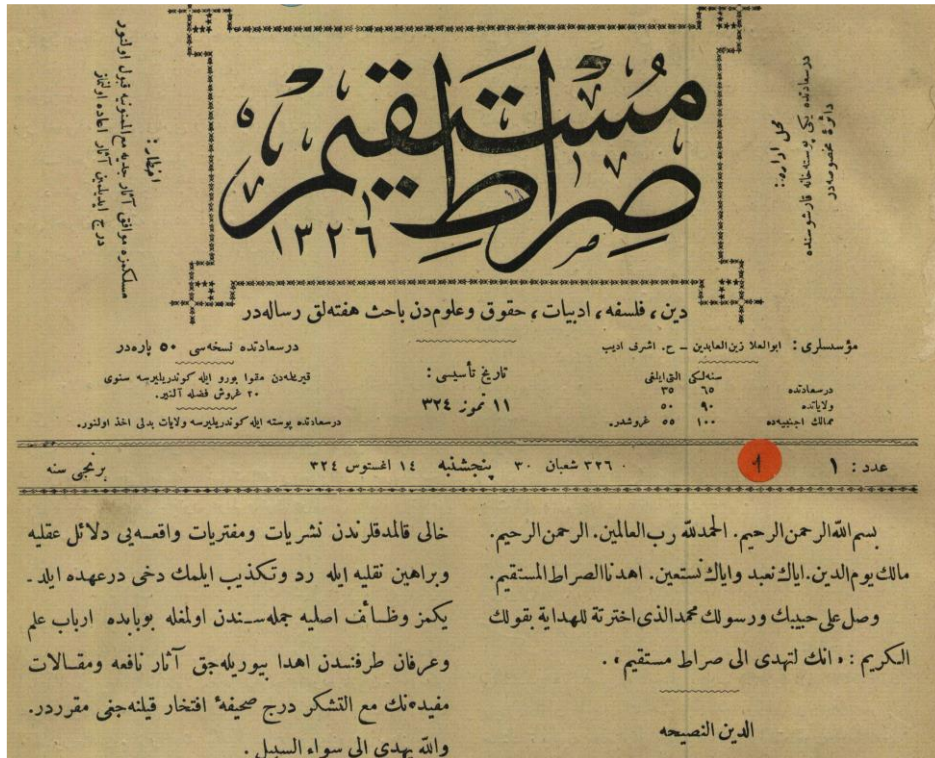 صراط مستقيم
١٣٢٦
درسعادتده يكى پوسته خانه قارشوسنده
دائرۀ مخصوصه در
محل اداره :
اخطار :
مسلكمزه موافق آثار جديه مع الممنونيه قبول اولنور
درج ايديلمين آثار اعاده اولنماز
دين ، فلسفه ، ادبيات ، حقوق وعلوم دن باحث هفته لق رساله در
مؤسسلرى : ابوالعلا زين العابدين – ح. اشرف اديب
سنه لكى التى ايلغى
درسعادتده ٦٥ ٣٥
ولاياتده ٩٠ ٥٠
ممالك اجنبيه ده ١٠٠ ٥٥ غروشدر.
تاريخ تأسيسى :
١١ تموز ٣٢٤
درسعادتده نسخه سى ٥٠ پاره در
قيريلمه دن مقوا بورو ايله كوندريليرسه سنوى
٢٠ غروش فضله آلنير.
درسعادتده پوسته ايله كوندريليرسه ولايات بدلى اخذ اولنور.
عدد : ١
1
٣٢٦ شعبان ٣٠ پنجشنبه ١٤ اغستوس ٣٢٤
برنجى سنه
بسم الله الرحمن الرحيم . الحمدلله رب العالمين . الرحمن الرحيم .
مالك يوم الدين . اياك نعبد واياك نستعين . اهدنا الصراط المستقيم .
وصل على حبيبك ورسولك محمد الذى اخترته للهداية بقولك
الكريم : « انك لتهدى الى صراط مستقيم » .
الدين النصيحه
خالى قالمدقلرندن نشريات ومفتريات واقعه يى دلائل عقليه
وبراهين نقليه ايله رد وتكذيب ايلمك دخى درعهده ايلد ـ
يكمز وظائف اصليه جمله سندن اولمغله بوبابده ارباب علم
وعرفان طرفندن اهدا بيوريله جق آثار نافعه ومقالات
مفيده نك مع التشكر درج صحيفۀ افتخار قيلنه جغى مقرردر.
والله يهدى الى سواء السبيل .